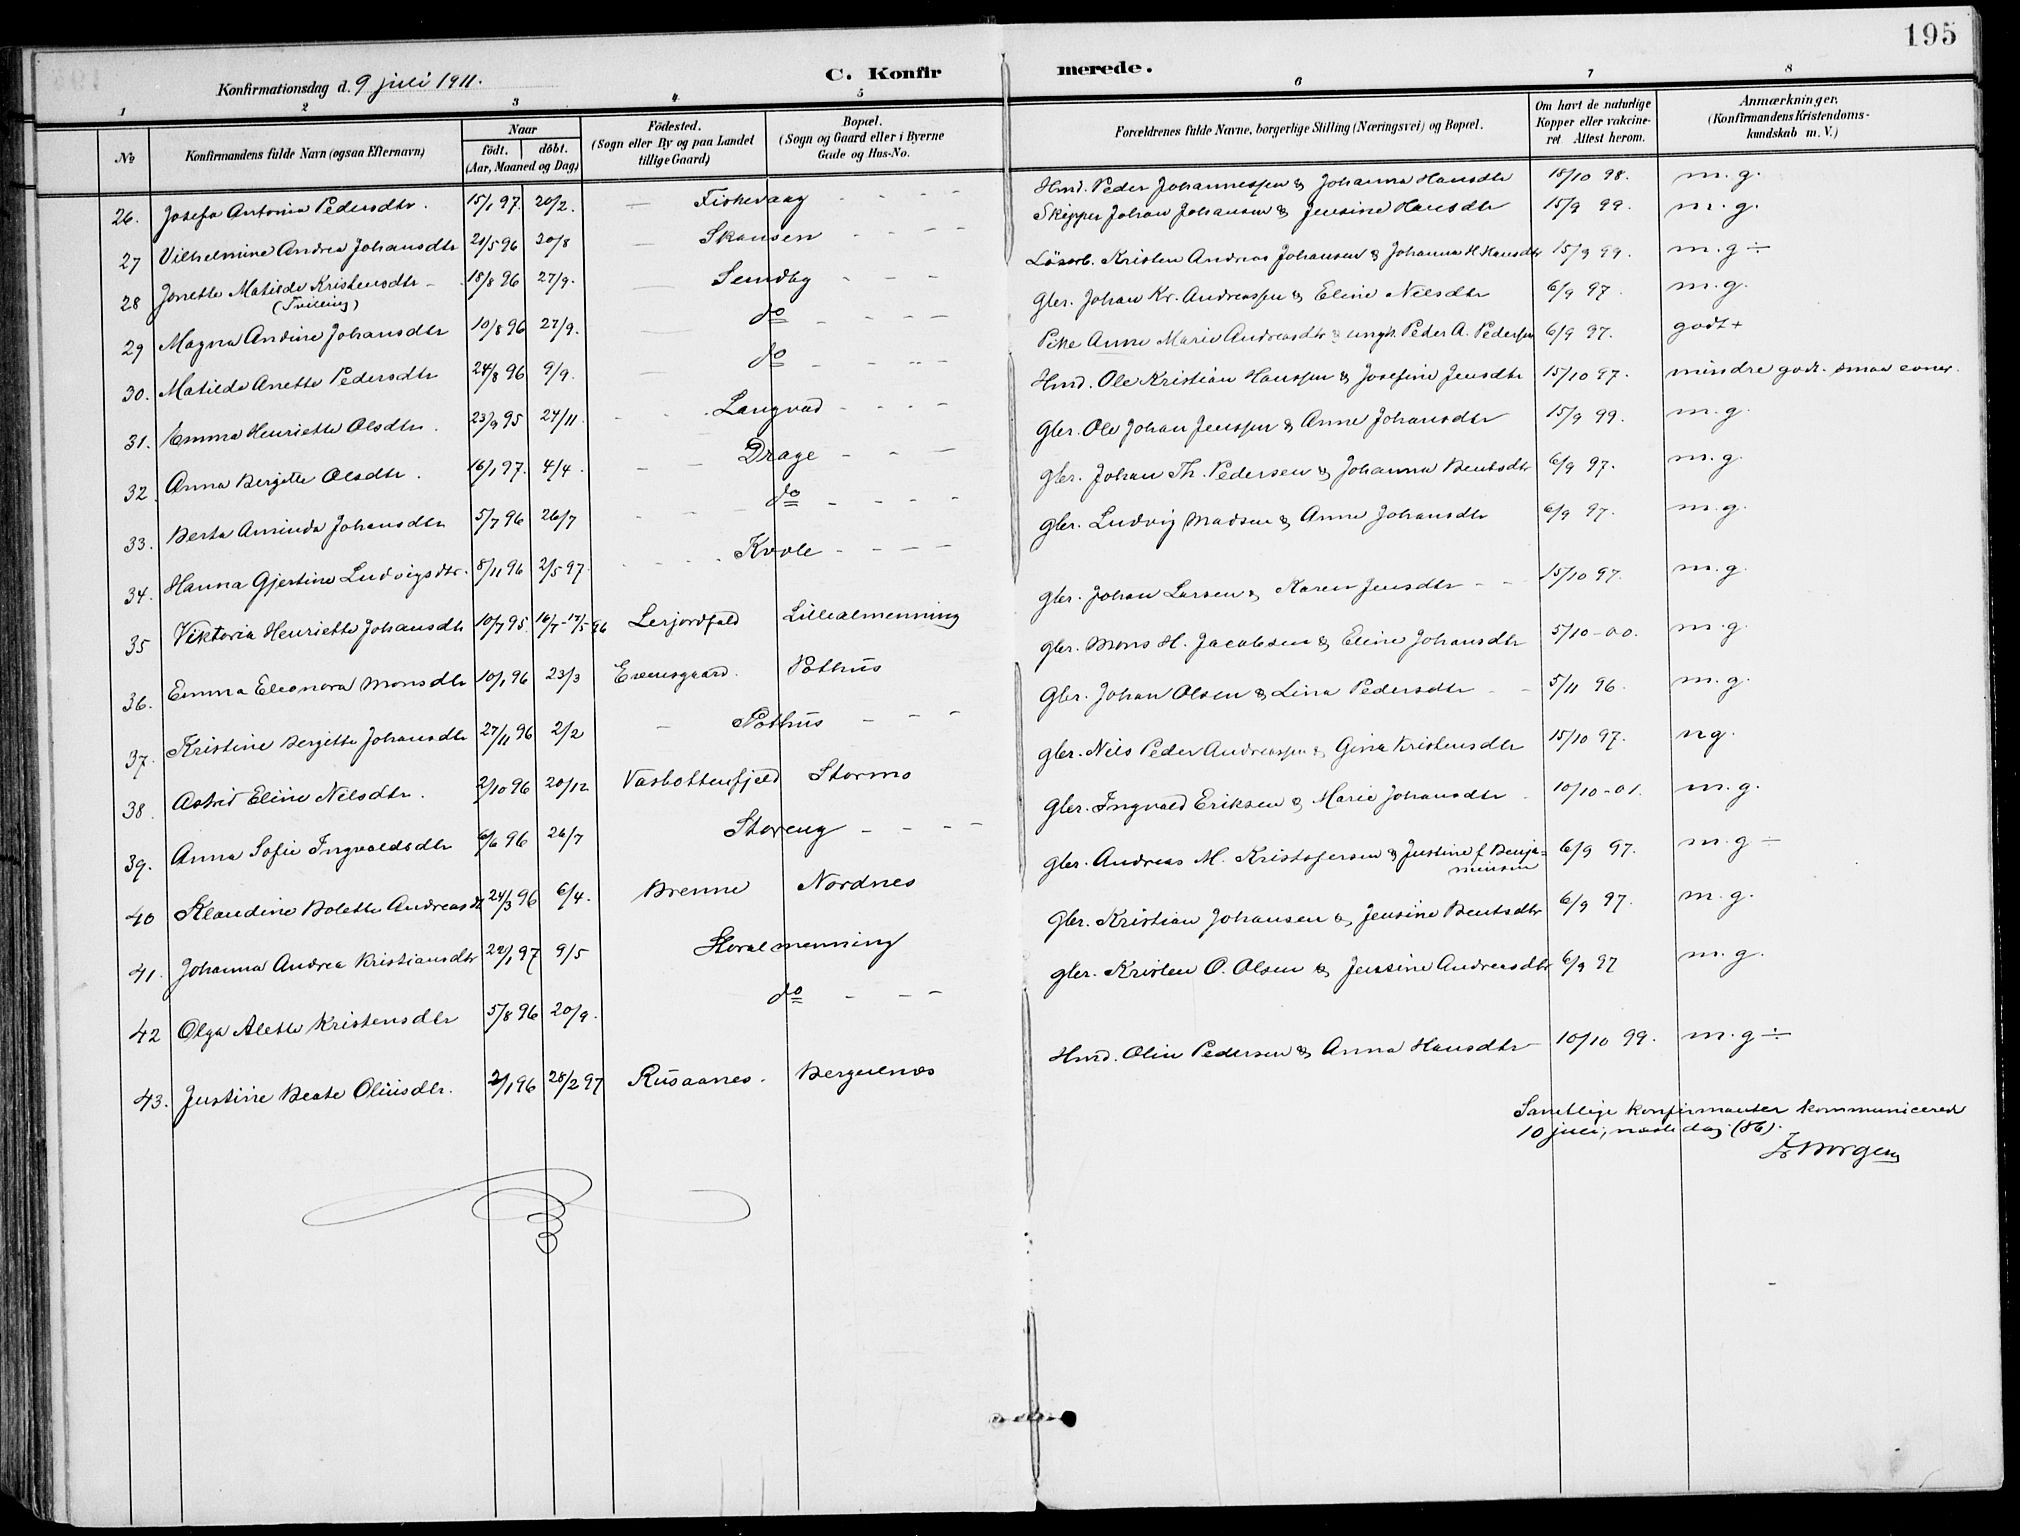 195
C. Konfirmerede.
Konfirmationsdag d. 9 juli 1911.
1 2 3 4 5 6 7 8
No
Konfirmandens fulde Navn (ogsaa Efternavn)
Naar
født. døbt.
(Aar, Maaned og Dag)
Fødested.
(Sogn eller By og paa Landet tillige Gaard)
Bopæl.
(Sogn og Gaard eller i Byerne Gade og Hus-No.
Forældrenes fulde Navne, borgerlige Stilling (Næringsvei) og Bopæl.
Om havt de naturlige Kopper eller vakcineret Attest herom.
Anmærkninger, (Konfirmandens Kristendomskundskab m. V.)
26. Josefa Antonia Pedersdtr. 15/1 97. 20/2. — Fiskevaag - - - Hmd. Peder Johannessen & Johanna Hansdtr 15/10 98. m.g.
27 Vilhelmine Andrea Johansdtr 21/5 96 30/8 — Skansen - - - - Skipper Johan Johansen & Jensine Hansdtr 15/9 99. m.g.
28 Jonette Matilde Kristensdtr - (Tvilling) 18/8 96 27/9. — Sundby - - - Løsarb. Kristen Andreas Johansen & Johanna H. Hansdtr 15/9 99. m.g ÷
29 Magna Andine Johansdtr 10/8 96 27/9. — do - - - - Gbr. Johan Kr. Andreassen & Eline Nilsdtr 6/9 97. m.g.
30. Matilde Anette Pedersdtr 24/8 96 9/9. — do - - - - Pike Anne Marie Andreasdtr & ungk. Peder A. Pedersen 6/9 97. godt +
31. Emma Henriette Olsdtr. 23/9 95 24/11 - - - Langvad - - - - Hmd. Ole Kristian Hanssen & Josefine Jensdtr 15/10 97. mindre godt. smaa evner.
32 Anna Bergitte Olsdtr. 16/1 97. 4/4. - - Drage - - - Gbr. Ole Johan Jenssen & Anne Johansdtr 15/9 99. m.g.
33. Berta Aminda Johansdtr 5/7 96 26/7 - - - do - - - - Gbr. Johan Th. Pedersen & Johanna Bentsdtr 6/9 97. m.g.
34. Hanna Gjertine Ludvigsdtr. 8/11 96 2/5 97. - - - - Kvale - - - - Gbr. Ludvig Madsen & Anne Johansdtr 6/9 97. m.g.
35 Viktoria Henriette Johansdtr 10/7 95. 16/7-17/5 96 Lerjordfald Lillealmenning Gbr. Johan Larsen & Karen Jensdtr - - 15/10 97. m.g.
36. Emma Eleonora Monsdtr 10/1 96 23/3 Evensgaard. Pothus Gbr. Mons H. Jacobsen & Eline Johansdtr 5/10-00. m.g.
37. Kristine Bergitte Johansdtr 27/11 96 2/2 - Pothus - - - Gbr. Johan Olsen & Lina Pedersdtr - - 5/11 96. m.g.
38. Astrid Eline Nilsdtr. 2/10 96 20/12 Vasbottenfjeld Stormo Gbr. Nils Peder Andreassen & Gina Kristensdtr 15/10 97. ng.
39. Anna Sofie Ingvaldsdtr 6/6 96 26/7 Storeng - - - - Gbr. Ingvald Eriksen & Marie Johansdtr - 10/10-01. m.g.
40 Klaudine Bolette Andreasdt 24/3 96 6/4. Brenne Nordnes Gbr. Andreas M. Kristofersen & Justine f. Benjaminsen 6/9 97. m.g ÷
41. Johanna Andrea Kristiansdtr 22/1 97 9/5 Storalmenning Gbr. Kristian Johansen & Jensine Bentsdtr 6/9 97. m.g.
42 Olga Alette Kristensdtr 5/8 96 20/9. do - - - Gbr. Kristen O. Olsen & Jensine Andreasdtr 6/9 97 m.g.
43. Justine Beate Oliisdtr. 2/1 96 28/2 97 Rusaanes. Bergulnes Hmd. Olin Pedersen & Anna Hansdtr 10/10 99. m.g ÷
Samtlige konfirmanter kommunicerede
10 juli, næste dag (86).